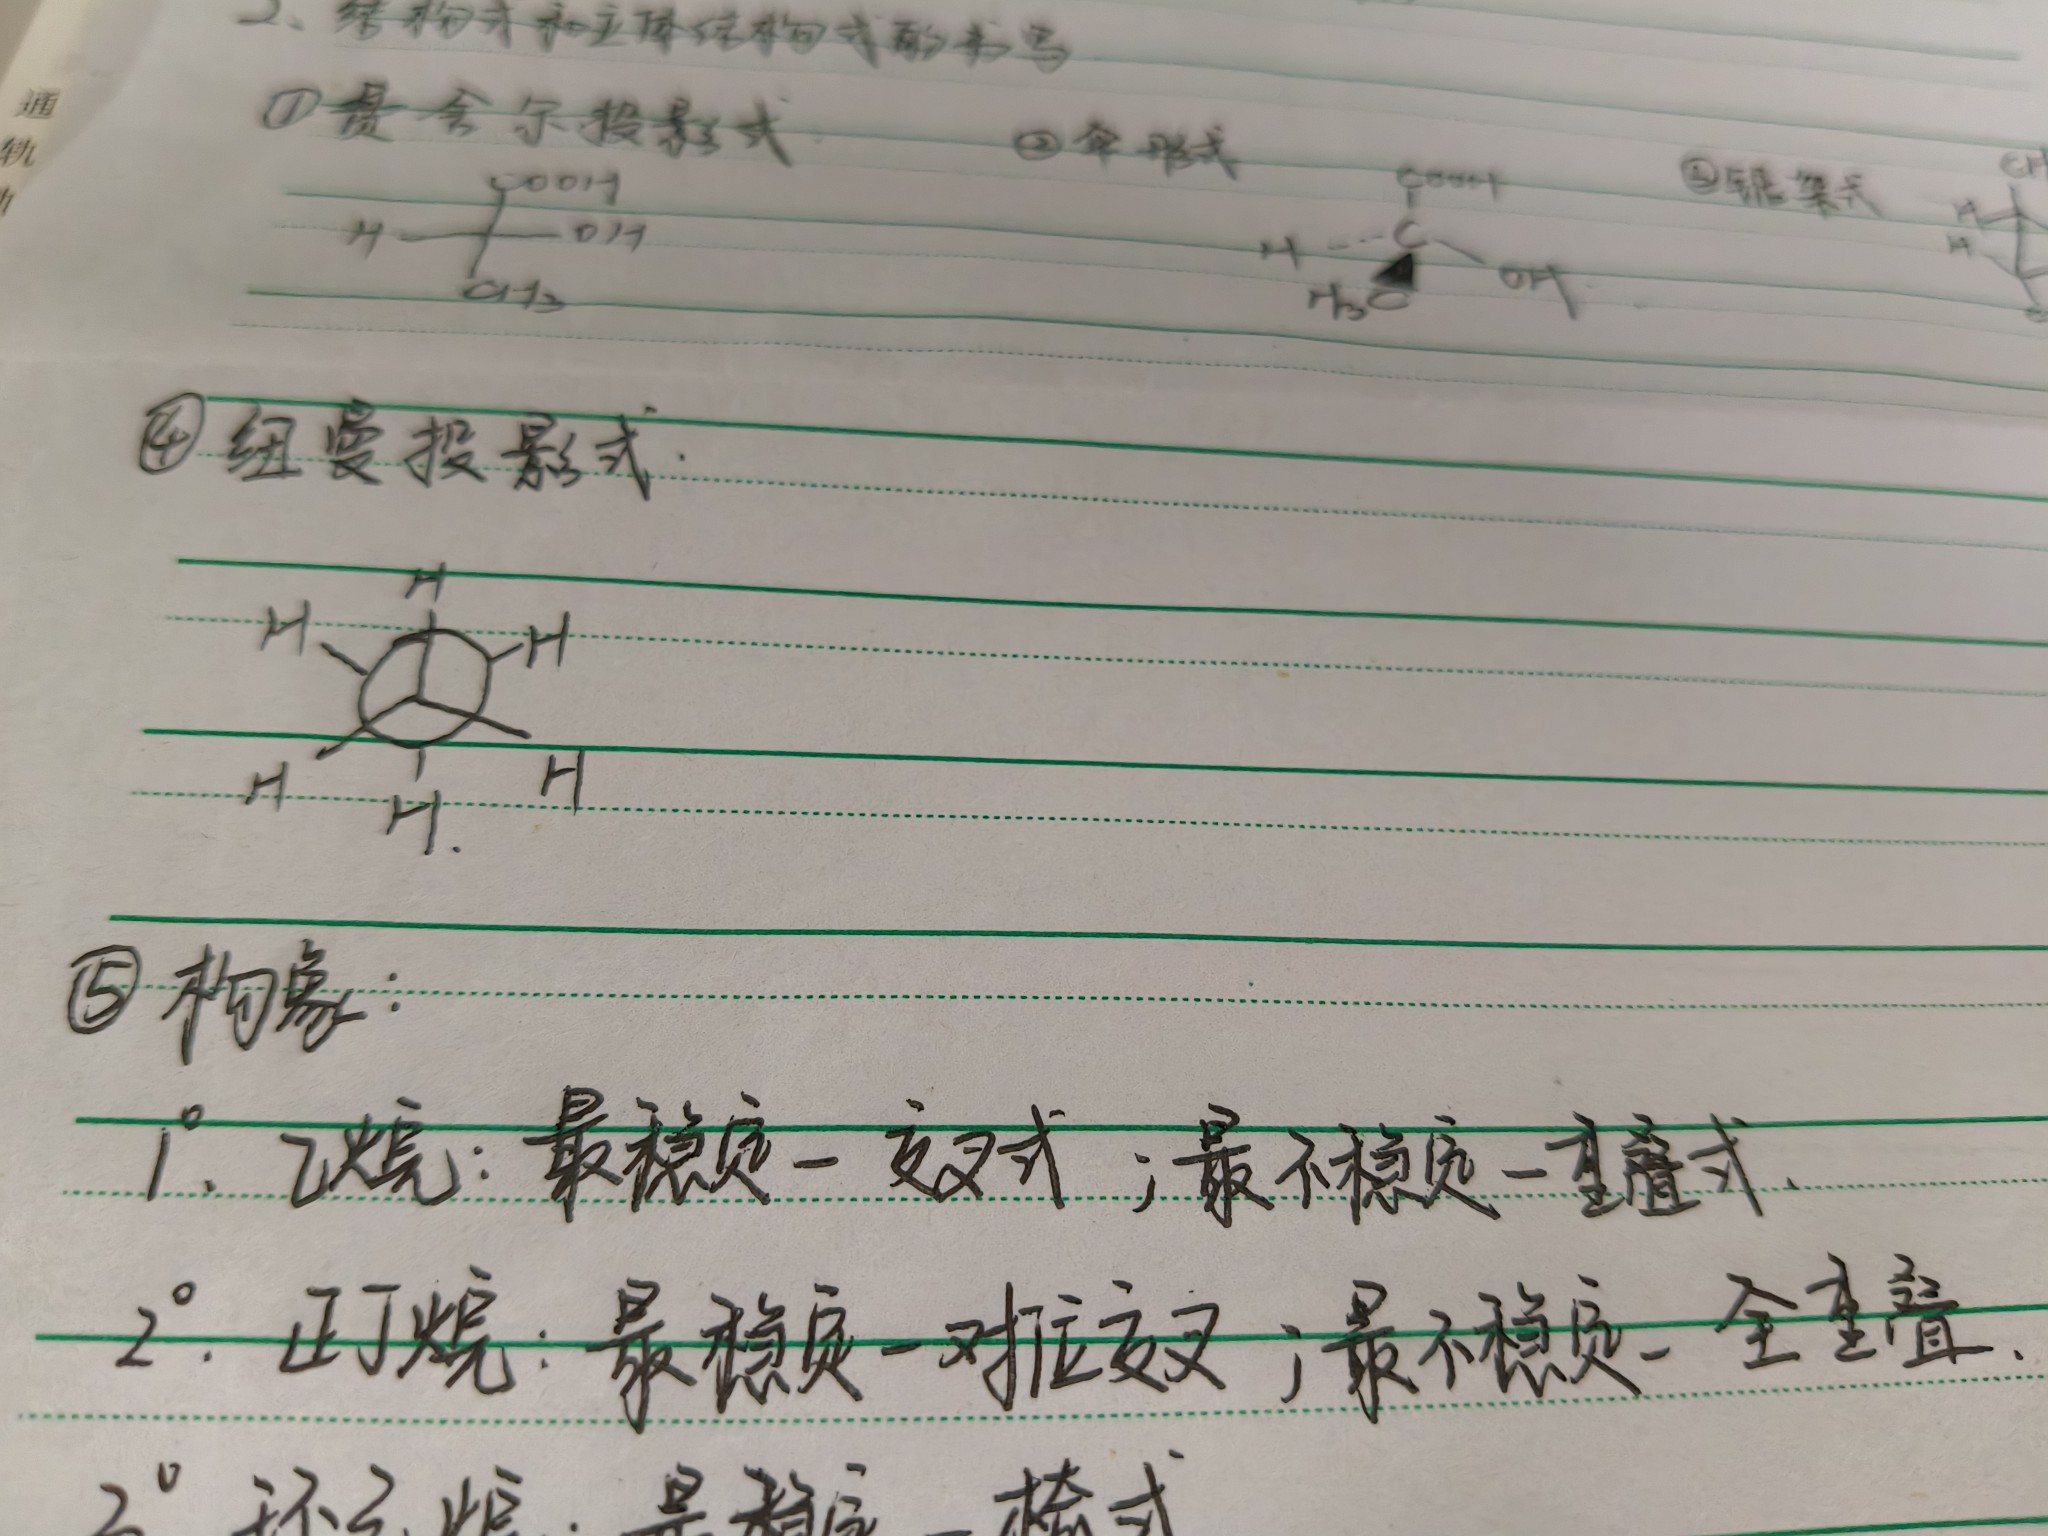 通
轨
2、结构式和立体结构式的书写
①费舍尔投影式 ②伞形式 ③锯架式
COOH COOH CH
H OH H C OH H
CH3 H3C H
④纽曼投影式.
H
H H
H H
H.
⑤构象:
1°. 乙烷:最稳定-交叉式;最不稳定-重叠式.
2°. 正丁烷:最稳定-对位交叉;最不稳定-全重叠.
3° 环己烷:最稳定-椅式